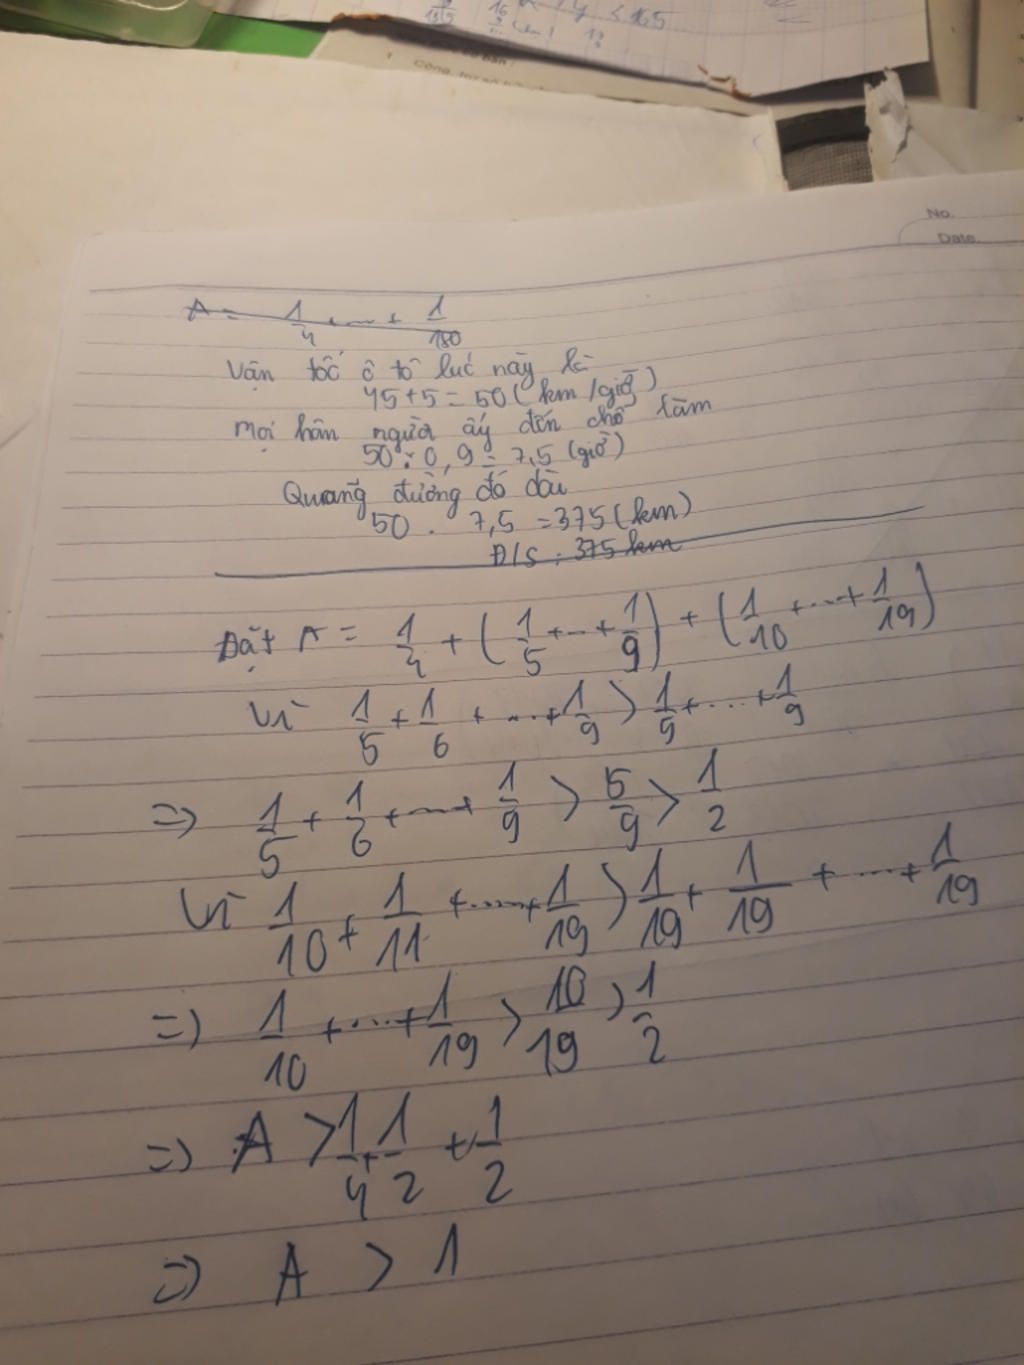 < 165
No.
Date.
A = 1/4 + ... + 1/180
Vận tốc ô tô lúc này là
45+5 = 50 (km/giờ)
mọi hôn người ấy đến chỗ làm
50 : 0,9 = 7,5 (giờ)
Quang đường đó dài
50 . 7,5 = 375 (km)
Đ/S : 375 km
Đặt A = 1/4 + (1/5 + ... + 1/9) + (1/10 + ... + 1/19)
Vì 1/5 + 1/6 + ... + 1/9 > 1/9 + ... + 1/9
=> 1/5 + 1/6 + ... + 1/9 > 5/9 > 1/2
Vì 1/10 + 1/11 + ... + 1/19 > 1/19 + 1/19 + ... + 1/19
=> 1/10 + ... + 1/19 > 10/19 > 1/2
=> A > 1/4 + 1/2 + 1/2
=> A > 1